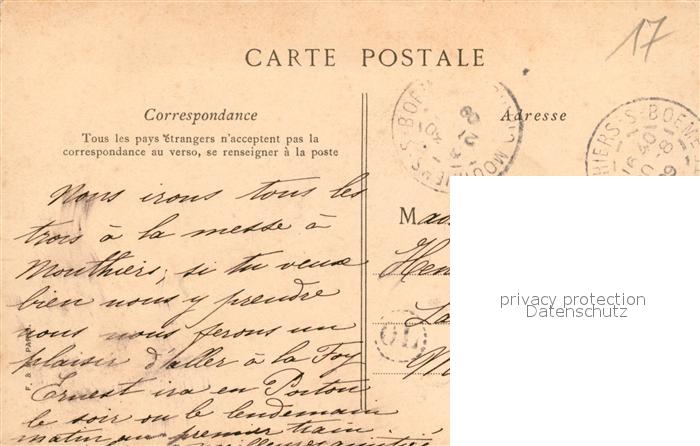 17
CARTE POSTALE
Correspondance
Adresse
Tous les pays étrangers n'acceptent pas la
correspondance au verso, se renseigner à la poste
Nous irons tous les
trois à la messe à
Mouthiers, si tu veux
bien nous y prendre
nous nous ferons un
plaisir d'aller à la Foy
Ernest ira en Poitou
le soir ou le lendemain
matin au premier train.
Mad
Hen
La
M
OL
HIERS-S-BOEME
16 40
8-1
09
privacy protection
Datenschutz
PARIS